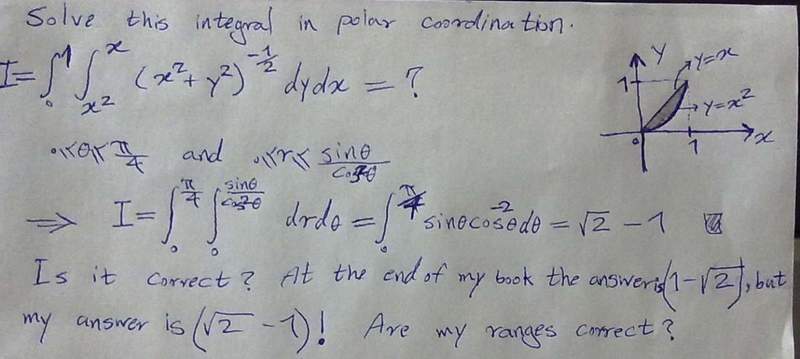 Solve this integral in polar coordination.
I = ∫₀¹ ∫_{x²}^{x} (x²+y²)^{-1/2} dydx = ?
y
1
y=x
y=x²
0
1
x
0≤θ≤π/4 and 0≤r≤ sinθ/cos²θ
⇒ I = ∫₀^{π/4} ∫₀^{sinθ/cos²θ} drdθ = ∫₀^{π/4} sinθcos⁻²θdθ = √2 - 1
Is it correct? At the end of my book the answer is (1-√2), but
my answer is (√2 - 1)! Are my ranges correct?